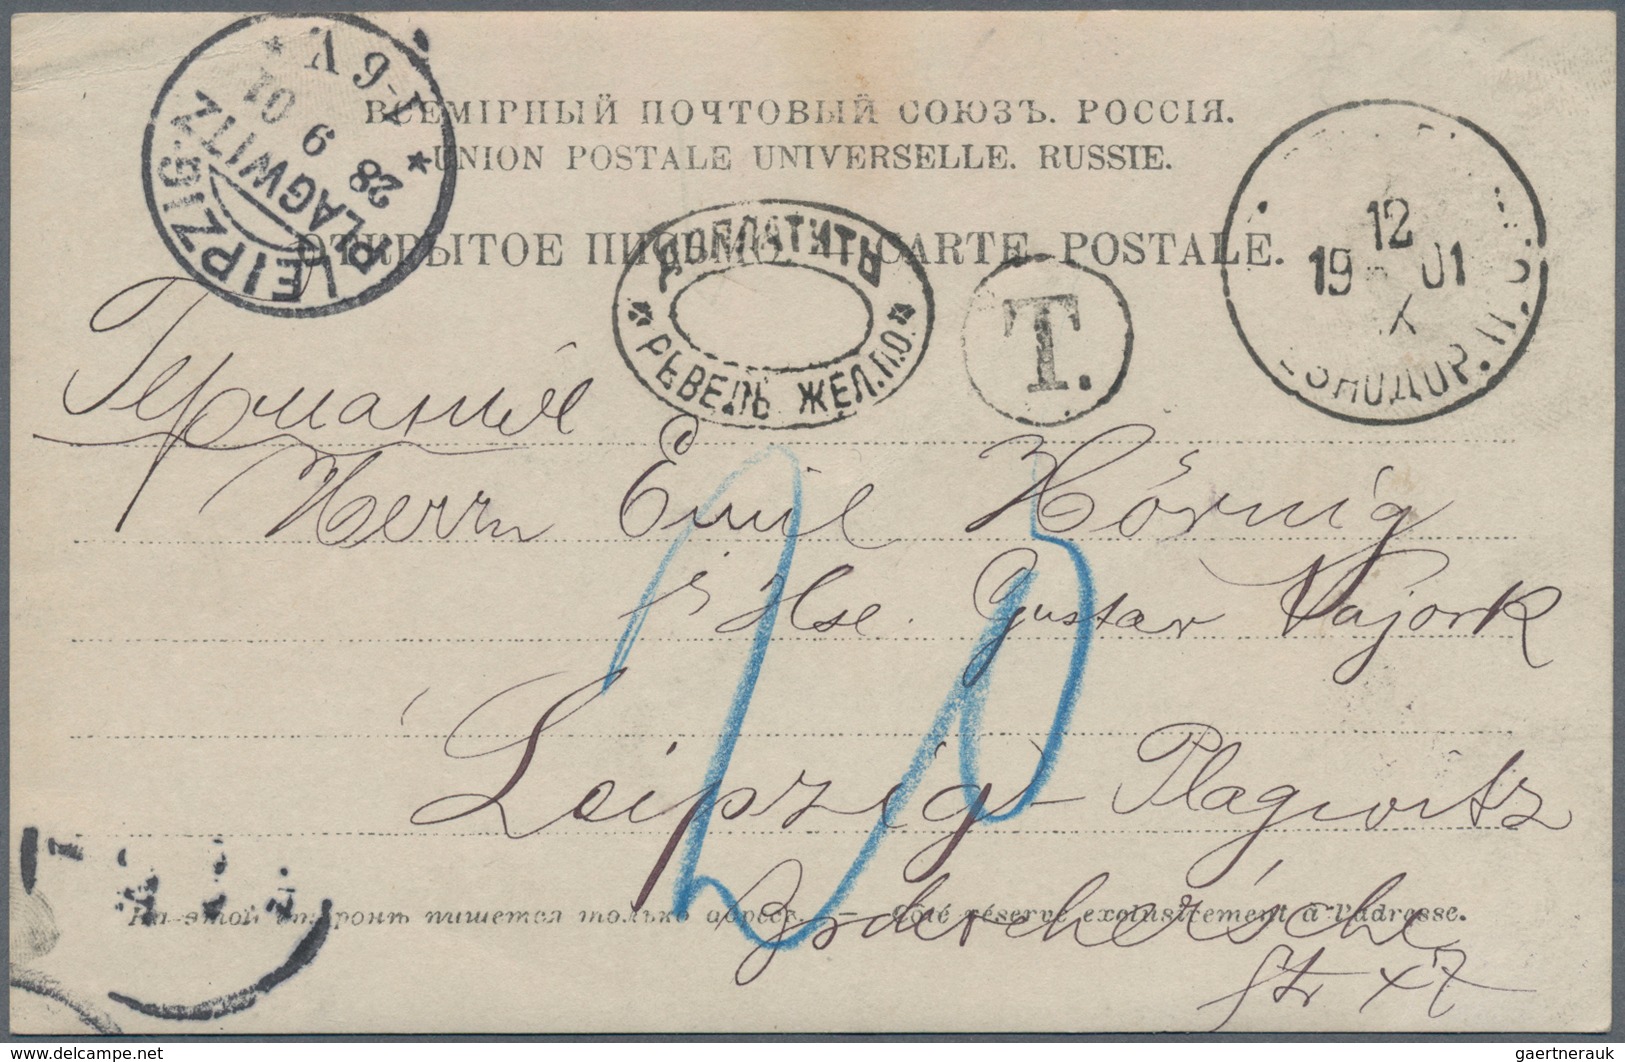 ВСЕМІРНЫЙ ПОЧТОВЫЙ СОЮЗЪ. РОССІЯ.
UNION POSTALE UNIVERSELLE. RUSSIE.
ОТКРЫТОЕ ПИСЬМО. — CARTE POSTALE.
LEIPZIG-
PLAGWITZ
28 9 01
4-6 V.
ДОПЛАТИТЬ
ЖЕЛ.П.О.
T.
12
19 01
X
Германія
Herrn Emil Hörnig
Hse. Gustav Vajork
20
Leipzig-Plagwitz
Str 47
На этой сторонѣ пишется только адресъ. — Côté réservé exclusivement à l'adresse.
www.delcampe.net
gaertnerauk